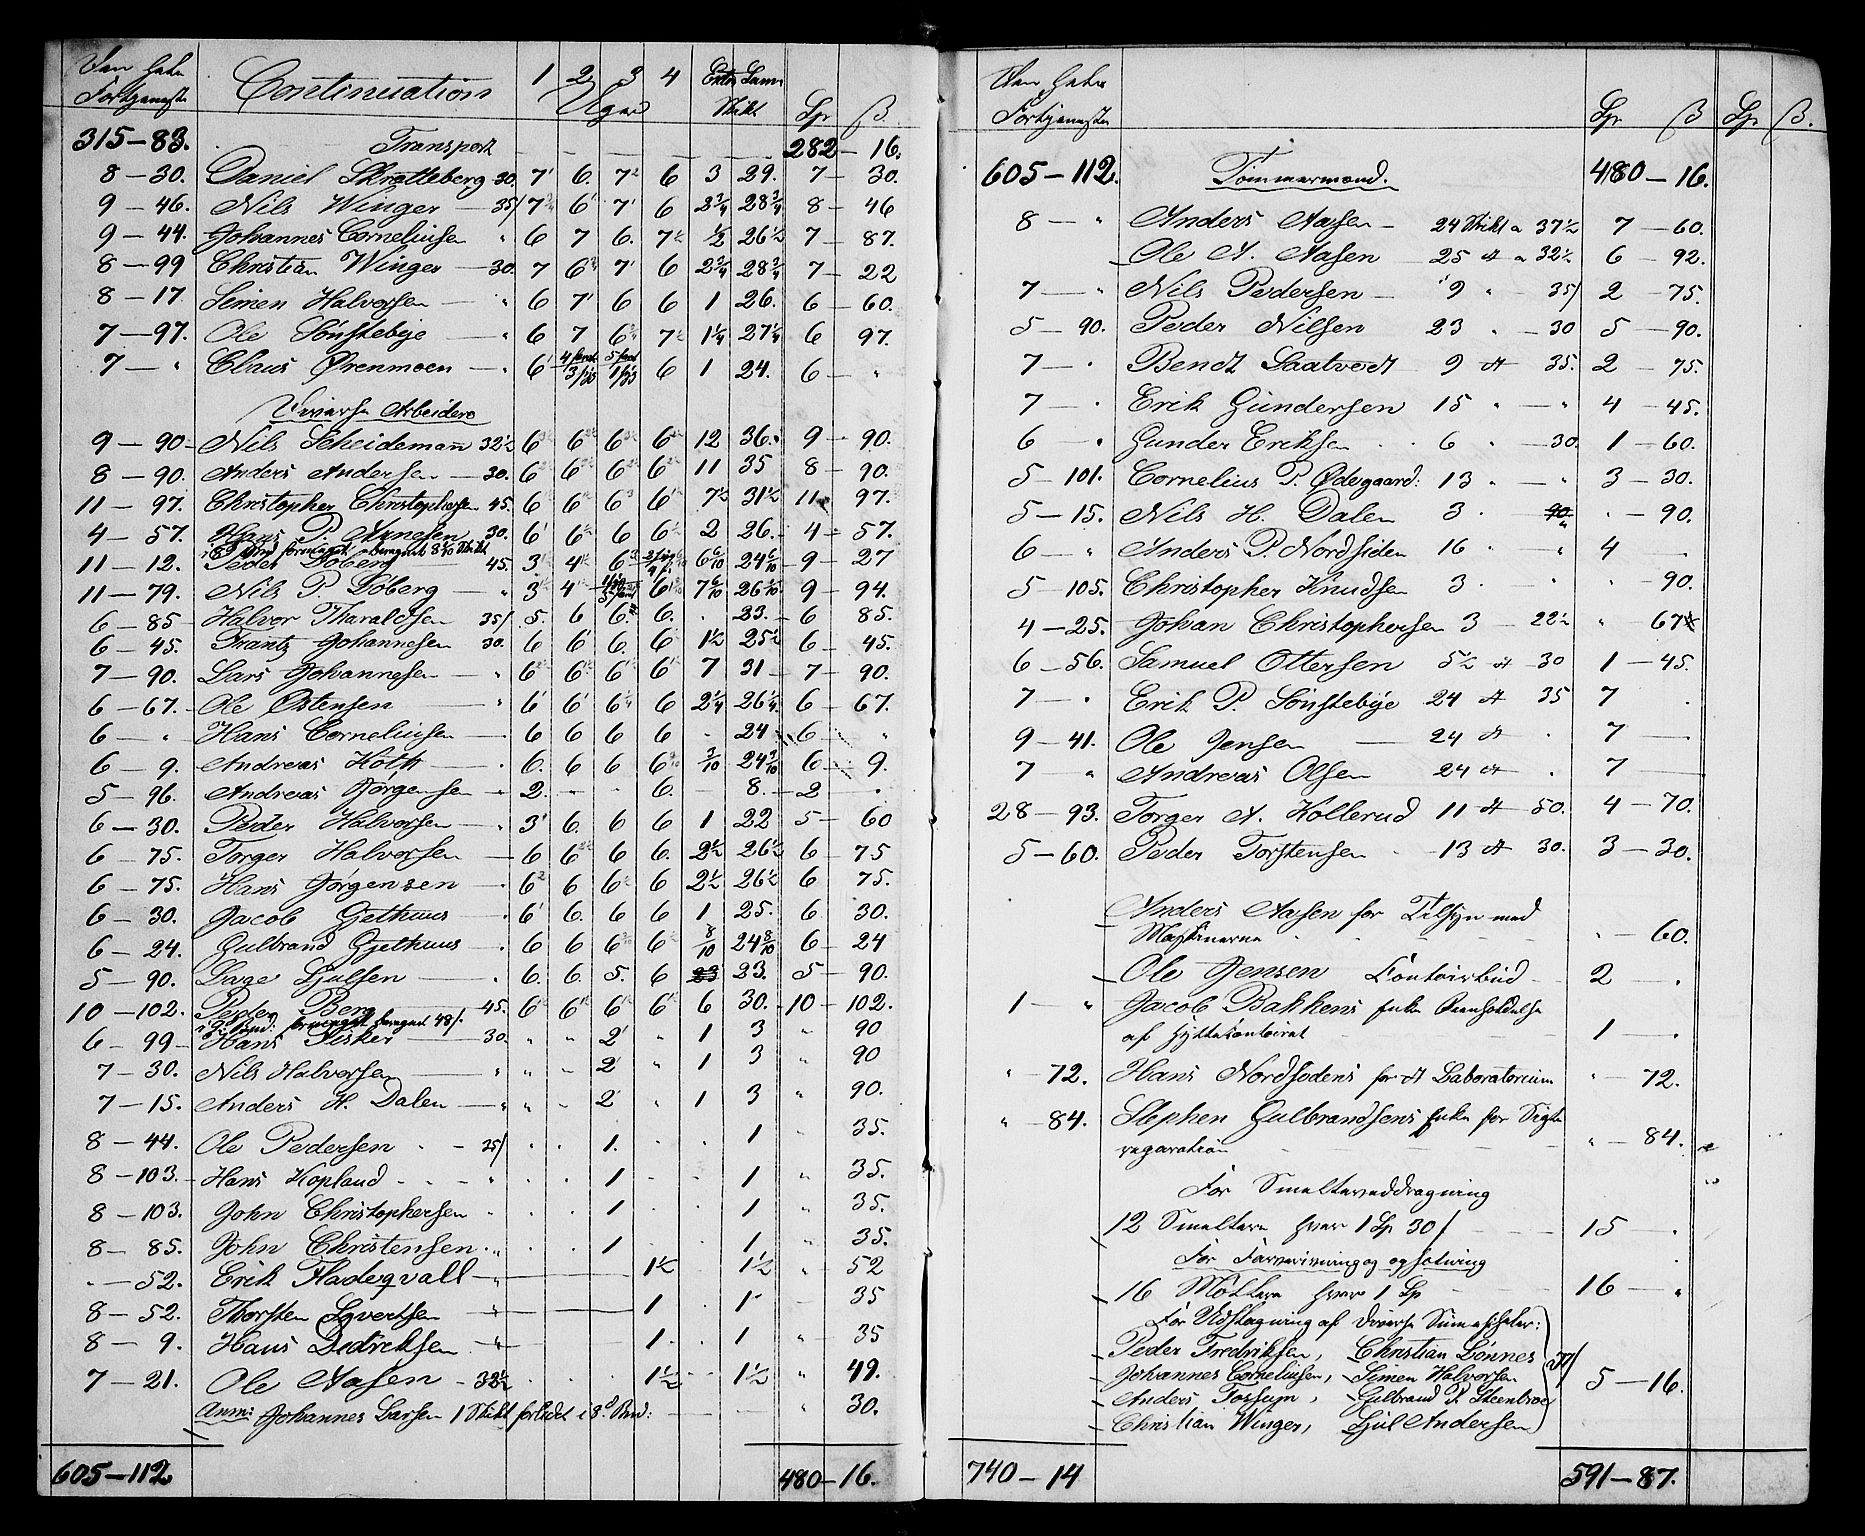 Continuation 1 2 3 4 Extra Sum
Fortjeneste Uger Skikt Sp β
315-83. Transport 282-16.
8-30. Daniel Skrotteberg 30. 7 6. 7 6 3 29. 7-30.
9-46. Nils Winger 35/ 7 6 7 6 2¾ 28¾ 8-46
9-44. Johannes Corneliusen " 6 7 6. 7½ ½ 26½ 7-87.
8-99 Christian Winger 30. 7 6 7 6 2¾ 28¾ 7-22
8-17 Simen Halvorsen " 6 7 6 6 1 26. 6-60.
7-97. Ole Sønstebye " 6 7 6¼ 7 1¼ 27¼ 6 97.
7-" Claus Ørenmoen " 6 6 1 24. 6-"
Diverse Arbeidere
9-90 Nils Scheidemann 32½ 6 6 6 6 12 36. 9-90.
8-90. Anders Andersen 30. 6 6 6 6 11 35 8-90.
11-97. Christopher Christophersen 45. 6 6 6 6 7½ 31½ 11-97.
4-57. Hans P. Arnesen 30. 6 6 6 6 2 26. 4-57.
11-12. Peder Loberg 45. 3 4 6 6 6/10 24 6/10 9-27
11-79. Nils P. Loberg " 3 4 6 7 6/10 26 6/10 9-94.
6-85 Halvor Tharaldsen 35/ 5. 6 6. 6. . 23. 6 85.
6-45. Frantz Johannesen 30. 6 6 6. 6 1½ 25½ 6-45.
7-90. Lars Johannesen " 6 6 6 6 7 31 7-90.
6-67. Ole Østensen " 6 6 6¼ 6 2¼ 26¼ 6-67.
6-" Hans Corneliusen 6 6 6 6 . 24 6 "
6-9. Andreas Hoth 6. 6 6 6 3/10 24 3/10 6 9.
5-96. Andreas Jørgensen " 2. - - 6. - 8. 2-.
6-30. Peder Halvorsen 3 6. 6 6 1 22 5-60
6-75. Torger Halvorsen 6 6 6 6. 2½ 26½ 6-75
6-75. Hans Jørgensen 6 6 6 6 2½ 26½ 6 75.
6-30. Jacob Gjethuus 6 6. 6 6 1 25. 6 30.
6-24. Gulbrand Gjethuus 6 6 6 6 8/10 24 8/10 6-24
5-90. Lage Gulsen 6. 6. 5. 6 23 23. 5-90.
10-102. Peder Berg 45. 6 6 6 6 6 30. 10-102.
6-99 Hans Fisker 30. " " 2 " 1 3 " 90
7-30. Nils Halvorsen " " - 2 1 3 " 90
7-15. Anders H. Dalen " " - 2 " 1 3 " 90.
8-44. Ole Pedersen 35/ 1. 1 35.
8-103. Hans Kopland 1 1 35.
8-103. John Christophersen 1 1 35.
8-85. John Christensen 1 1 35.
"-52. Erik Fladeqvall 1½ 1½ " 52
8-52. Thorsten Syvertsen 1 1 35
8-9. Hans Didriksen 1. 1 " 35
7-21. Ole Aasen 32½ 1½ 1½ " 49.
Anm: Johannes Larsen 1 Skikt forledet i 8de Pnd: " 30.
605-112 480-16.
Fortjeneste Sp β Sp β.
605-112. Tømmermænd. 480-16.
8-" Anders Aasen 24 Skikt a 37½ 7-60.
Ole A. Aasen 25 dt a 32½ 6-92.
7-" Nils Pedersen 9 " 35/ 2-75.
5-90. Peder Nilsen 23 " 30 5-90.
7-" Bendt Saatvedt 9 dt 35. 2-75.
7-" Erik Gundersen 15 " " 4-45.
6-" Gunder Eriksen 6 " 30. 1-60.
5-101. Cornelius P. Ødegaard: 13 " " 3-30.
5-15. Nils H. Dalen 3 " " "-90.
6-" Anders P. Nordsiden 16 " " 4-
5-105. Christopher Knudsen 3 " " " 90.
4-25. Johan Christophersen 3 22½ " 67½
6-56. Samuel Ottersen 5½ dt 30 1-45.
7-" Erik P. Sønstebye 24 dt 35 7 .
9-41. Ole Jensen 24 dt " 7-
7-" Andreas Olsen 24 dt " 7-
28-93. Torger A. Kollerud 11 dt 50. 4-70.
5-60. Peder Torstensen 13 dt 30. 3-30.
Anders Aasen for Tilsyn med
Maskinerne "-60.
Ole Jensen Contoirbud 2-.
1-" Jacob Bakkens Enke Reenholdelse
af Hyttekontoiret 1-.
"-72. Hans Nordsodens for dt Laboratorium "-72.
"-84. Stephen Gulbrandsens Enke for Sigte
reparation "-84.
For Smelteveddragning
12 Smeltere hver 1 Sp 30/ 15 .
For Farverivning og sætning
16 Møllere hver 1 Sp 16-"
For Udslagning af diverse
Peder Fredriksen, Christian Lønnes
Johannes Corneliusen, Simen Halvorsen
Anders Fossum, Gulbrand P. Steenbroe 5-16.
Christian Winger, Gul Andersen
740-14 591-87.